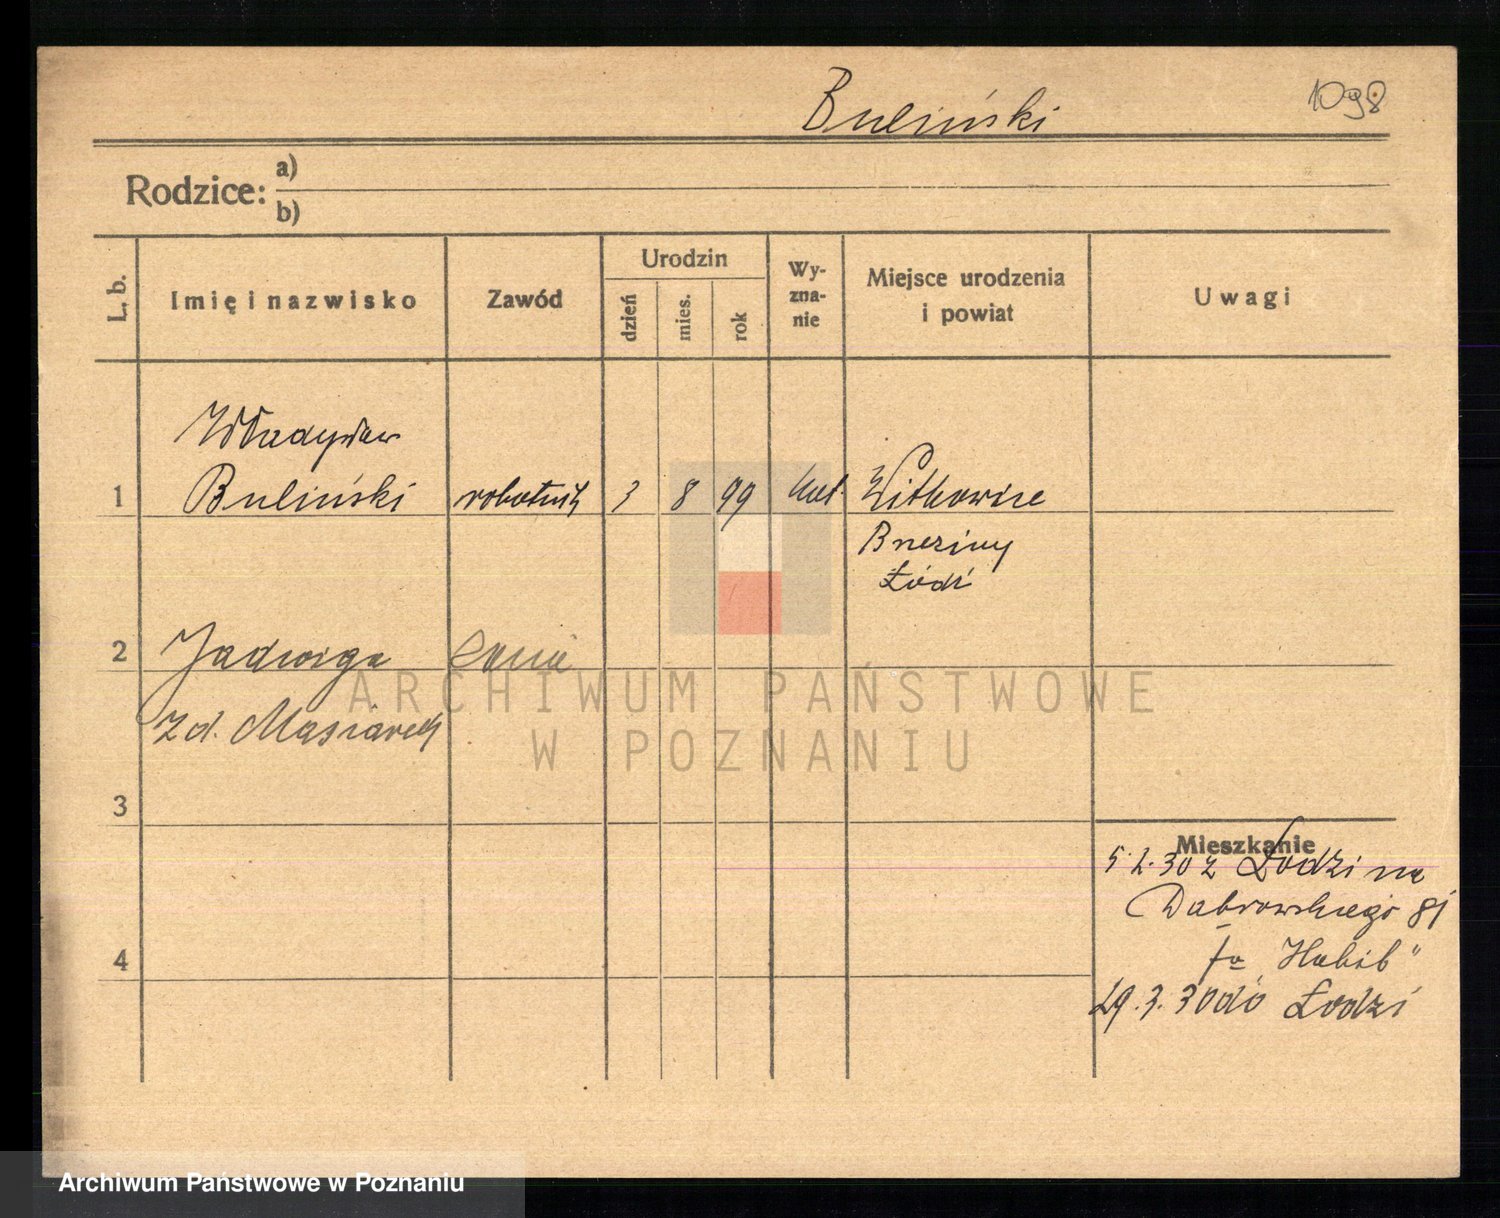 Buliński
1098
Rodzice:
a)
b)
L. b.
Imię i nazwisko
Zawód
Urodzin
dzień
mies.
rok
Wy-
zna-
nie
Miejsce urodzenia
i powiat
Uwagi
Władysław
1 Buliński robotnik 3 8 99 kat. Witkowice
Brzeziny
Łódź
2 Jadwiga
zd. Masiarek
3
Mieszkanie
5.2.30 z Łodzi na
Dąbrowskiego 81
fa "Habib"
4
29.3.30 do Łodzi
ARCHIWUM PAŃSTWOWE
W POZNANIU
Archiwum Państwowe w Poznaniu